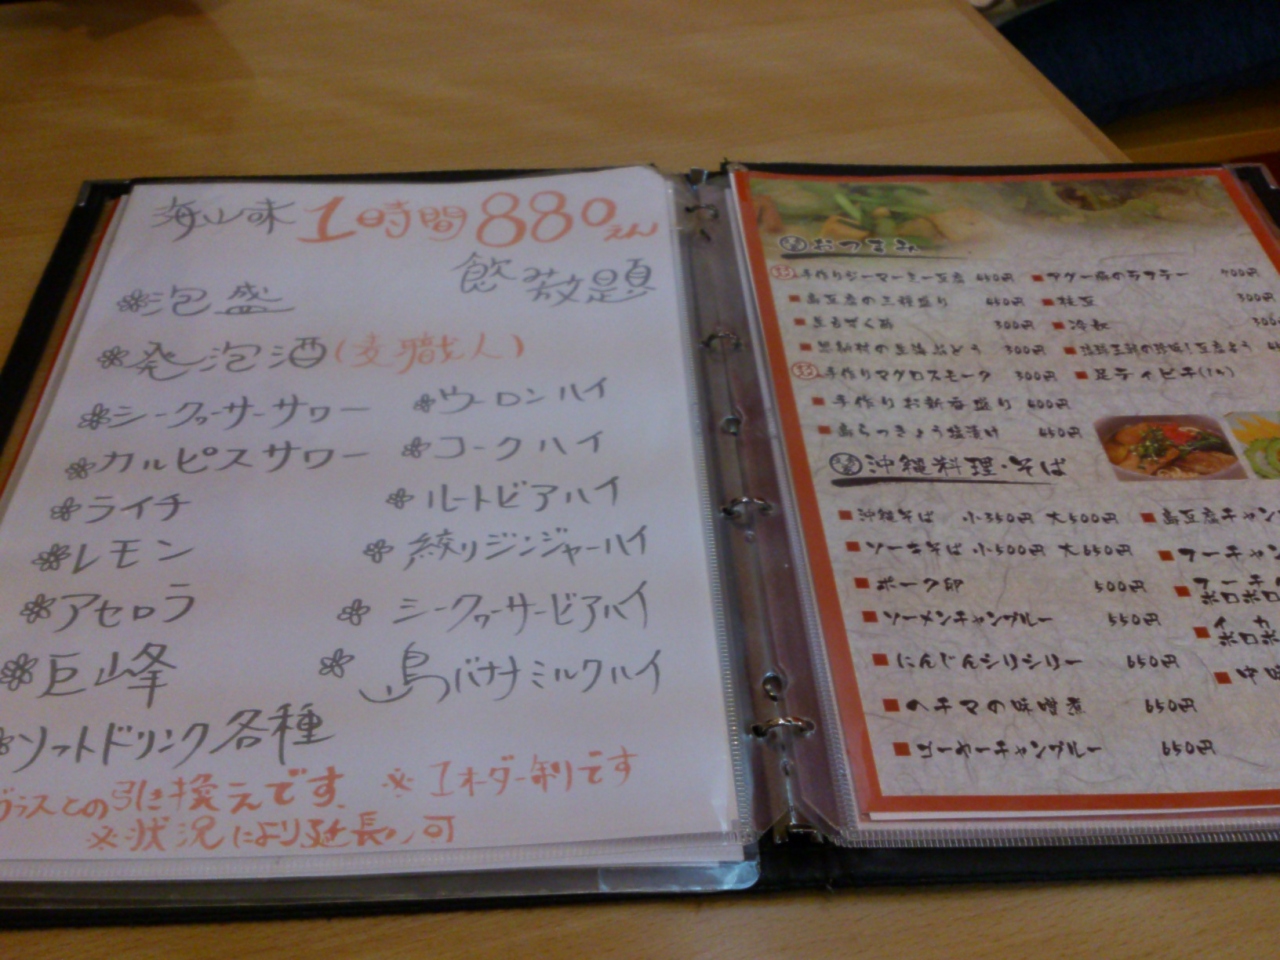 海山味 1時間 880えん
飲み放題
泡盛
発泡酒(麦職人)
シークヮーサーサワー
カルピスサワー
ライチ
レモン
アセロラ
巨峰
ソフトドリンク各種
ウーロンハイ
コークハイ
ルートビアハイ
絞りジンジャーハイ
シークヮーサービアハイ
島バナナミルクハイ
グラスとの引き換えです。 ※1オーダー制です
※状況により延長不可
おつまみ
手作りジーマーミー豆腐 450円
島豆腐の三種盛り 450円
生もずく酢 300円
300円
手作りマグロスモーク 300円
手作りお新香盛り 400円
島らっきょう塩漬け 450円
アグー豚のラフテー 900円
枝豆 300円
冷奴 300
豆腐よう
足ティビチ
沖縄料理・そば
沖縄そば 小350円 大500円
ソーキそば 小500円 大650円
ポーク卵 500円
ソーメンチャンプルー 550円
にんじんシリシリー 650円
ヘチマの味噌煮 650円
ゴーヤーチャンプルー 650円
島豆腐チャン
フーチャン
フーチの
ボロボロ
イカ
ボロボ
中味